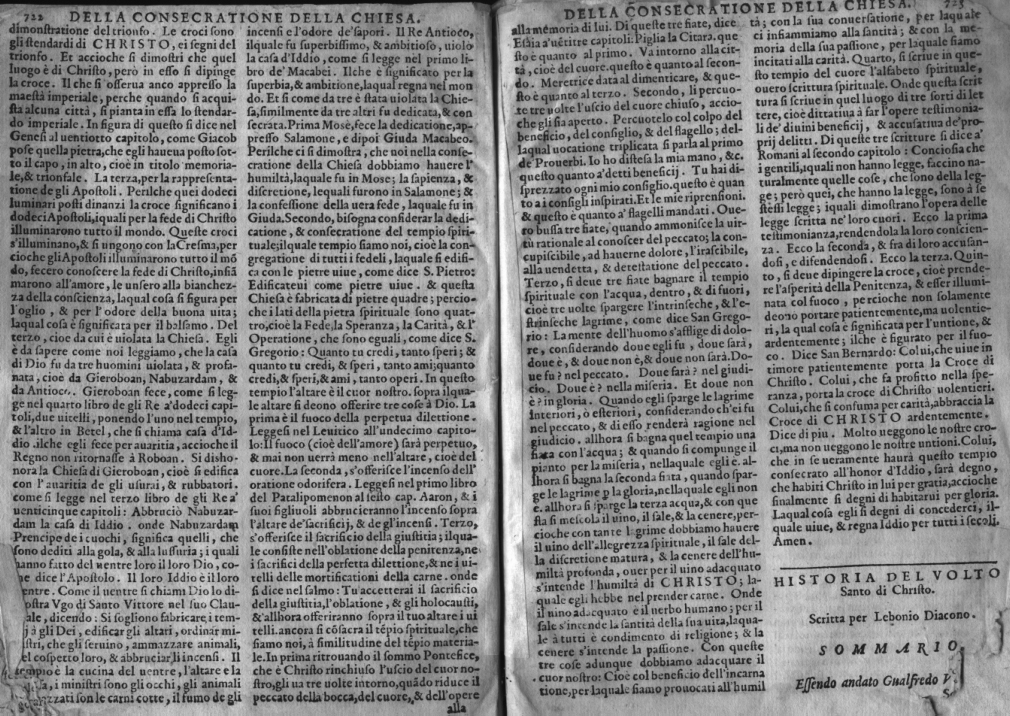 722 DELLA CONSECRATIONE DELLA CHIESA.
dimostratione del trionfo. Le croci sono
gli stendardi di CHRISTO, ei segni del
trionfo. Et accioche si dimostri che quel
luogo è di Christo, però in esso si dipinge
la croce. Il che si osserua anco appresso la
maestà imperiale, perche quando si acqui-
sta alcuna città, si pianta in essa lo stendar-
do imperiale. In figura di questo si dice nel
Genesi al uentiotto capitolo, come Giacob
pose quella pietra, che egli haueua posto sot-
to il capo, in alto, cioè in titolo memoria-
le, & trionfale. La terza, per la rappresenta-
tione de gli Apostoli. Perilche quei dodeci
luminari posti dinanzi la croce significano i
dodeci Apostoli, iquali per la fede di Christo
illuminarono tutto il mondo. Queste croci
s'illuminano, & si ungono con la Cresma, per
cioche gli Apostoli illuminarono tutto il mõ
do, fecero conoscere la fede di Christo, infiã
marono all'amore, le unsero alla bianchez-
za della conscienza, laqual cosa si figura per
l'oglio, & per l'odore della buona uita;
laqual cosa è significata per il balsamo. Del
terzo, cioè da cui è uiolata la Chiesa. Egli
è da sapere come noi leggiamo, che la casa
di Dio fu da tre huomini uiolata, & profa-
nata, cioè da Gieroboan, Nabuzardam, &
da Antioco. Gieroboan fece, come si leg-
ge nel quarto libro de gli Re a'dodeci capi-
toli, due uitelli, ponendo l'uno nel tempio,
& l'altro in Betel, che si chiama casa d'Id-
dio. ilche egli fece per auaritia, accioche il
Regno non ritornasse à Roboan. Si disho-
nora la Chiesa di Gieroboan, cioè si edifica
con l'auaritia de gli usurai, & rubbatori.
come si legge nel terzo libro de gli Re a'
uenticinque capitoli: Abbruciò Nabuzar-
dam la casa di Iddio. onde Nabuzardam
Prencipe de i cuochi, significa quelli, che
sono dediti alla gola, & alla lussuria; i quali
hanno fatto del uentre loro il loro Dio, co-
me dice l'Apostolo. Il loro Iddio è il loro
uentre. Come il uentre si chiami Dio lo di-
mostra Vgo di Santo Vittore nel suo Clau-
strale, dicendo: Si sogliono fabricare i tem-
pij à gli Dei, edificar gli altari, ordinar mi-
nistri, che gli seruino, ammazzare animali,
nel cospetto loro, & abbruciar gli incensi. Il
tempio è la cucina del uentre, l'altare e la
, i ministri sono gli occhi, gli animali
ammazzati son le carni cotte, il fumo de gli
incensi e l'odore de'sapori. Il Re Antioco,
ilquale fu superbissimo, & ambitioso, uiolò
la casa d'Iddio, come si legge nel primo li-
bro de' Macabei. Ilche è significato per la
superbia, & ambitione, laqual regna nel mon
do. Et si come da tre è stata uiolata la Chie-
sa, similmente da tre altri fu dedicata, & con
secrata. Prima Mose, fece la dedicatione, ap-
presso Salamone, e dipoi Giuda Macabeo.
Perilche ci si dimostra, che noi nella conse-
cratione della Chiesa dobbiamo hauere l'
humiltà, laquale fu in Mose; la sapienza, &
discretione, lequali furono in Salamone; &
la confessione della uera fede, laquale fu in
Giuda. Secondo, bisogna considerar la dedi-
catione, & consecratione del tempio spiri-
tuale; ilquale tempio siamo noi, cioè la con-
gregatione di tutti i fedeli, laquale si edifi-
ca con le pietre uiue, come dice S. Pietro:
Edificateui come pietre uiue. & questa
Chiesa è fabricata di pietre quadre; percio-
che i lati della pietra spirituale sono quat-
tro, cioè la Fede, la Speranza, la Carità, & l'
Operatione, che sono eguali, come dice S.
Gregorio: Quanto tu credi, tanto speri; &
quanto tu credi, & speri, tanto ami; quanto
credi, & speri, & ami, tanto operi. In questo
tempio l'altare è il cuor nostro. sopra ilqua-
le altare si deono offerire tre cose à Dio. La
prima è il fuoco della perpetua dilettione.
Leggesi nel Leuitico all'undecimo capito-
lo: Il fuoco (cioè dell'amore) sarà perpetuo,
& mai non uerrà meno nell'altare, cioè del
cuore. La seconda, s'offerisce l'incenso dell'
oratione odorifera. Leggesi nel primo libro
del Patalipomenon al sesto cap. Aaron, & i
suoi figliuoli abbrucieranno l'incenso sopra
l'altare de'sacrificij, & de gl'incensi. Terzo,
s'offerisce il sacrificio della giustitia; ilqua-
le consiste nell'oblatione della penitenza, ne
i sacrifici della perfetta dilettione, & ne i ui-
telli delle mortificationi della carne. onde
si dice nel salmo: Tu accetterai il sacrificio
della giustitia, l'oblatione, & gli holocausti,
& allhora offeriranno sopra il tuo altare i ui
telli. ancora si cõsacra il tẽpio spirituale, che
siamo noi, à similitudine del tẽpio materia-
le. In prima ritrouando il sommo Pontefice,
che è Christo rinchiuso l'uscio del cuor no-
stro, gli ua tre uolte intorno, quãdo riduce il
peccato della bocca, del cuore, & dell'opere
alla
DELLA CONSECRATIONE DELLA CHIESA. 723
alla memoria di lui. Di queste tre fiate, dice
Esaia a'uẽtitre capitoli: Piglia la Citara. que-
sto è quanto al primo. Va intorno alla cit-
tà, cioè del cuore. questo è quanto al secon-
do. Meretrice data al dimenticare, & que-
sto è quanto al terzo. Secondo, li percuo-
te tre uolte l'uscio del cuore chiuso, accio-
che gli sia aperto. Percuotelo col colpo del
beneficio, del consiglio, & del flagello; del-
laqual uocatione triplicata si parla al primo
de'Prouerbi. Io ho distesa la mia mano, &c.
questo quanto a'detti beneficij. Tu hai di-
sprezzato ogni mio consiglio. questo è quan
to a i consigli inspirati. Et le mie riprensioni.
& questo è quanto a' flagelli mandati. Oue-
ro bussa tre fiate, quando ammonisce la uir-
tù rationale al conoscer del peccato; la con-
cupiscibile, ad hauerne dolore, l'irascibile,
alla uendetta, & detestatione del peccato.
Terzo, si deue tre fiate bagnare il tempio
spirituale con l'acqua, dentro, & di fuori,
cioè tre uolte spargere l'intrinseche, & l'e-
strinseche lagrime, come dice San Grego-
rio: La mente dell'huomo s'afflige di dolo-
re, considerando doue egli fu, doue sarà,
doue è, & doue non è, & doue non sarà. Do-
ue fu? nel peccato. Doue sarà? nel giudi-
cio. Doue è? nella miseria. Et doue non
è? in gloria. Quando egli sparge le lagrime
interiori, ò esteriori, considerando ch'ei fu
nel peccato, & di esso renderà ragione nel
giudicio. allhora si bagna quel tempio una
fiata con l'acqua; & quando si compunge il
pianto per la miseria, nellaquale egli e. al-
lhora si bagna la seconda fiata, quando spar-
ge le lagrime per la gloria, nellaquale egli non
e. allhora si sparge la terza acqua, & con que
sta si mescola il uino, il sale, & la cenere, per-
cioche con tante lagrime dobbiamo hauere
il uino dell'allegrezza spirituale, il sale del-
la discretione matura, & la cenere dell'hu-
miltà profonda, ouer per il uino adacquato
s'intende l'humiltà di CHRISTO; la-
quale egli hebbe nel prender carne. Onde
il uino adacquato è il uerbo humano; per il
sale s'intende la santità della sua uita, laqua-
le à tutti è condimento di religione; & la
cenere s'intende la passione. Con queste
tre cose adunque dobbiamo adacquare il
cuor nostro: Cioè col beneficio dell'incarna
tione, per laquale siamo prouocati all'humil
tà; con la sua conuersatione, per laquale
ci infiammiamo alla santità; & con la me-
moria della sua passione, per laquale siamo
incitati alla carità. Quarto, si scriue in que-
sto tempio del cuore l'alfabeto spirituale,
ouero scrittura spirituale. Onde questa scrit
tura si scriue in quel luogo di tre sorti di let
tere, cioè dittatiua à far l'opere testimonia-
li de' diuini beneficij, & accusatiua de'pro-
prij delitti. Di queste tre scritture si dice a'
Romani al secondo capitolo: Conciosia che
i gentili, iquali non hanno legge, faccino na-
turalmente quelle cose, che sono della leg-
ge; però quei, che hanno la legge, sono à se
stessi legge; iquali dimostrano l'opera delle
legge scritta ne'loro cuori. Ecco la prima
testimonianza, rendendola la loro conscien-
za. Ecco la seconda, & fra di loro accusan-
dosi, e difendendosi. Ecco la terza. Quin-
to, si deue dipingere la croce, cioè prende-
re l'asperità della Penitenza, & esser illumi-
nata col fuoco, percioche non solamente
deono portare patientemente, ma uolentie-
ri, la qual cosa è significata per l'untione, &
ardentemente; ilche è figurato per il fuo-
co. Dice San Bernardo: Colui, che uiue in
timore patientemente porta la Croce di
Christo. Colui, che fa profitto nella spe-
ranza, porta la croce di Christo uolentieri.
Colui, che si consuma per carità, abbraccia la
Croce di CHRISTO ardentemente.
Dice di piu. Molto ueggono le nostre cro-
ci, ma non ueggono le nostre untioni. Colui,
che in se ueramente haurà questo tempio
consecrato all'honor d'Iddio, sarà degno,
che habiti Christo in lui per gratia, accioche
finalmente si degni di habitarui per gloria.
Laqual cosa egli si degni di concederci, il-
quale uiue, & regna Iddio per tutti i secoli.
Amen.
HISTORIA DEL VOLTO
Santo di Christo.
Scritta per Lebonio Diacono.
SOMMARIO.
Essendo andato Gualfredo V